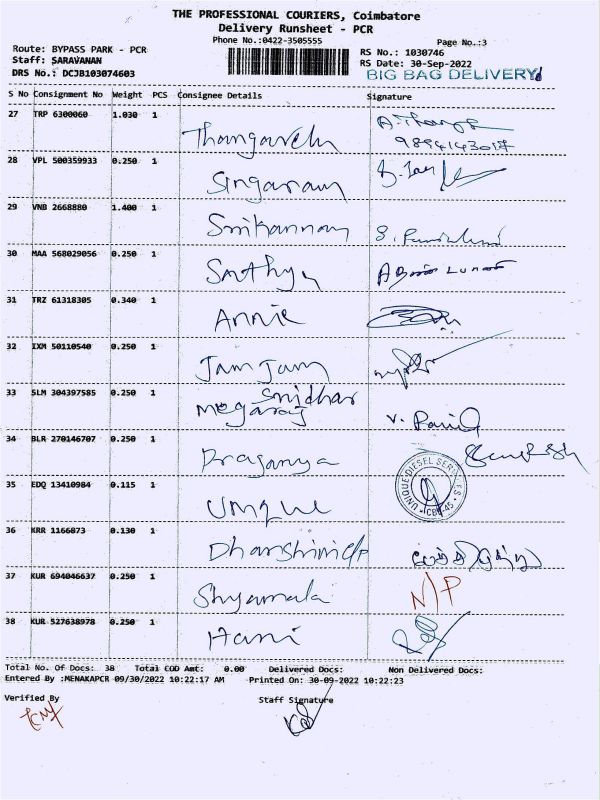 THE PROFESSIONAL COURIERS, Coimbatore
Delivery Runsheet - PCR
Phone No.:0422-3505555
Page No.:3
Route: BYPASS PARK - PCR
RS No.: 1030746
Staff: SARAVANAN
RS Date: 30-Sep-2022
DRS No.: DCJB103074603
BIG BAG DELIVERY
S No Consignment No Weight PCS Consignee Details Signature
27 TRP 6300060 1.030 1 Thangavelu
9894143017
28 VPL 500359933 0.250 1 Singaram
29 VNB 2668880 1.400 1 Srikannan
30 MAA 568029056 0.250 1 Sathya
31 TRZ 61318305 0.340 1 Annie
32 IXM 50110540 0.250 1 Jam Jam
33 SLM 304397585 0.250 1 Megaraj Sridhar
34 BLR 270146707 0.250 1 Praganya
35 EDQ 13410984 0.115 1 Unique
UNIQUE DIESEL SERVICES
CBE-45
36 KRR 1166873 0.130 1 Dharshini c/p
37 KUR 694046637 0.250 1 Shyamala N/P
38 KUR 527638978 0.250 1 Hami
Total No. Of Docs: 38 Total COD Amt: 0.00 Delivered Docs: Non Delivered Docs:
Entered By :MENAKAPCR 09/30/2022 10:22:17 AM Printed On: 30-09-2022 10:22:23
Verified By Staff Signature